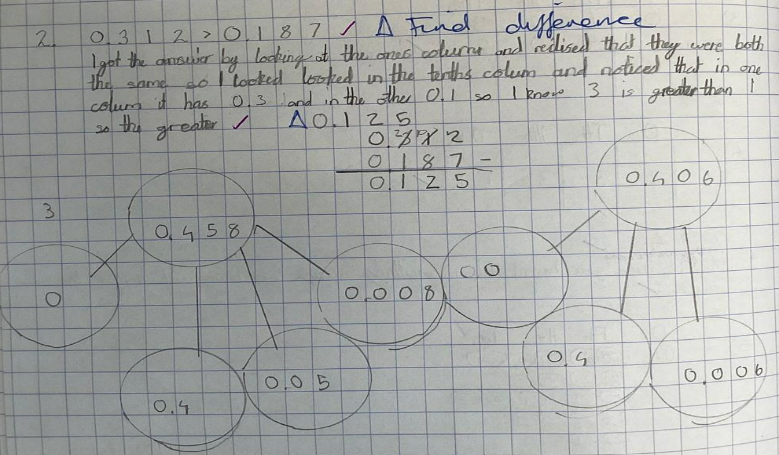 2. 0.312 > 0.187 ✓ Δ Find difference
I got the answer by looking at the ones column and realised that they were both
the same so I looked looked in the tenths colum and noticed that in one
colum it has 0.3 and in the other 0.1 so I know 3 is greater than 1
so the greater ✓ Δ 0.125
0.312
0.187 -
0.125
0.406
3
0.458
0
0.008
0
0.4
0.05
0.4
0.006